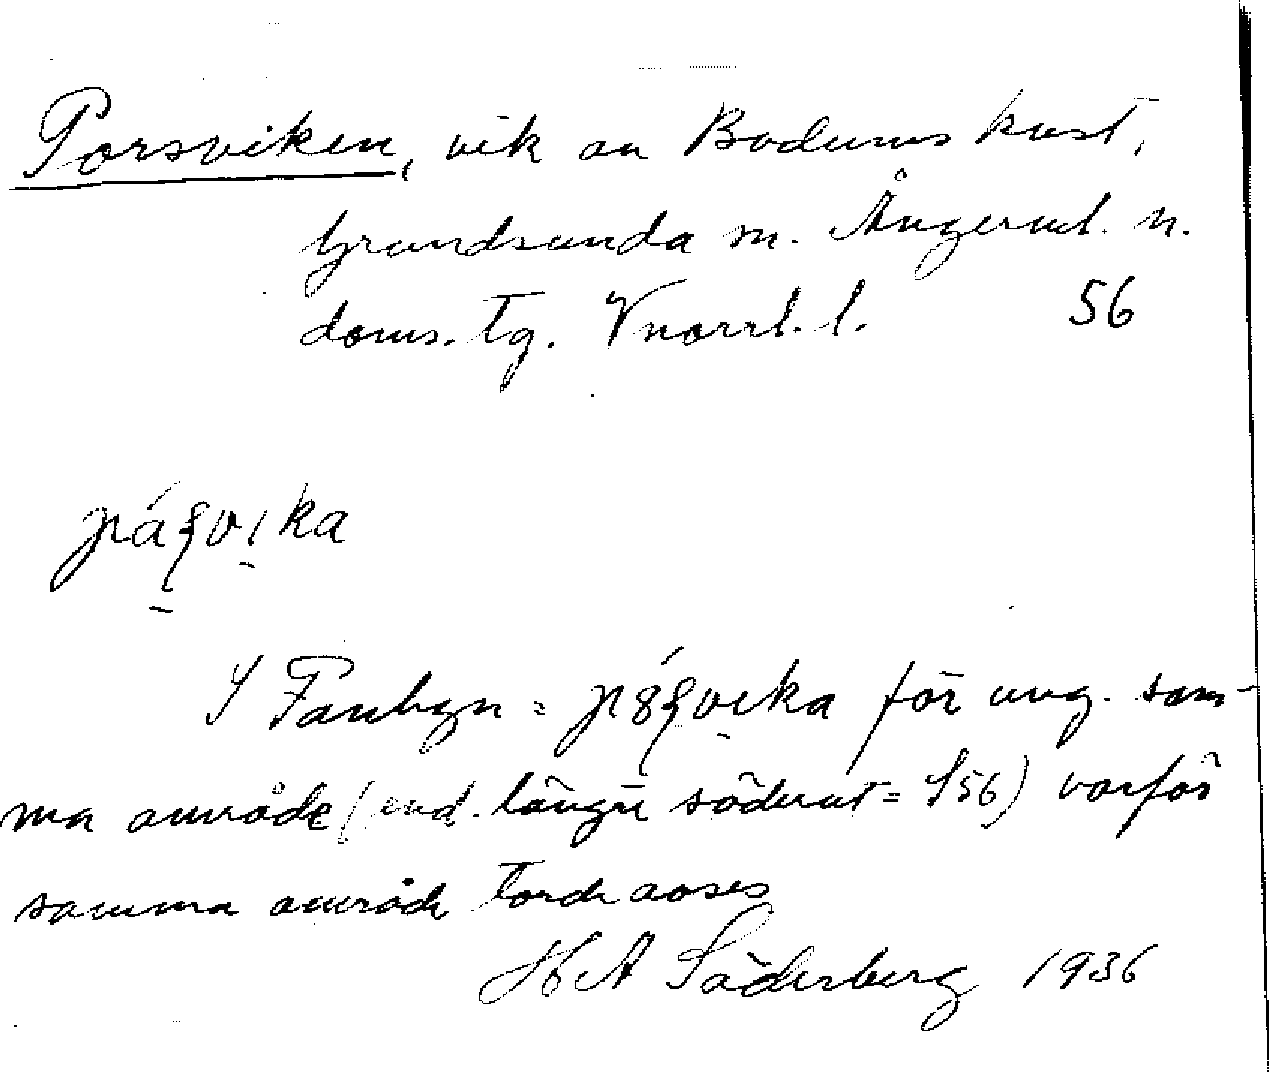 Porsviken, vik av Bodums kust,
Grundsunda sn. Ångerml. n.
doms. tg. Vnorrl. l. 56
I Fanbyn = för ung. sam-
ma område (end. längre söderut = 156) varför
samma område torde avses
H A Söderberg 1936